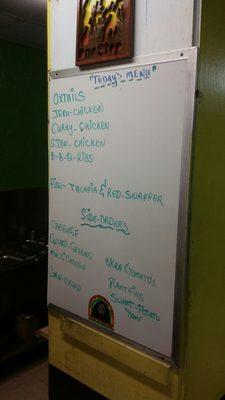 One Step
"Today's Menu"
Oxtails
Jerk-Chicken
Curry-Chicken
Stew-Chicken
B-B-Q-Ribs
Fish-Talapia & Red-Snapper
Side-Orders
Cabbage
Collard Greens
Mac n Cheese
Okra & Tomatos
Plantains
Sweet-Potato
"Yams"